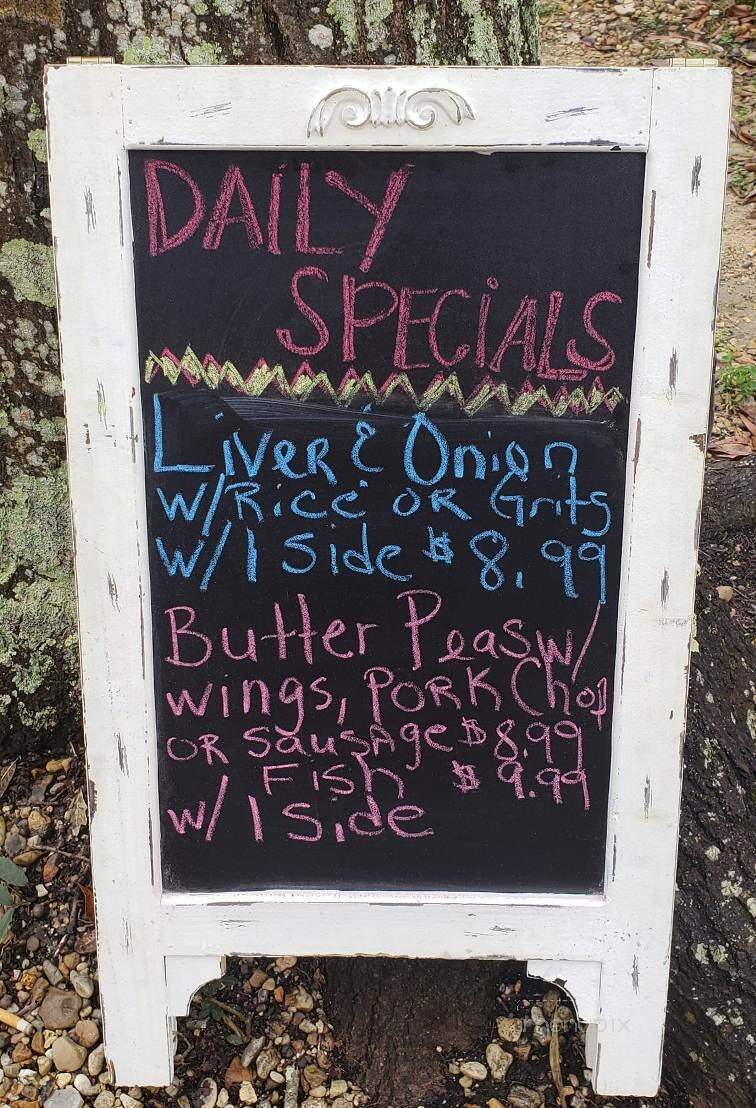 DAILY
SPECIALS
Liver & Onion
w/Rice OR Grits
w/1 Side $8.99
Butter Peas w/
wings, PORK Chop
OR sausage $8.99
Fish $9.99
w/1 side